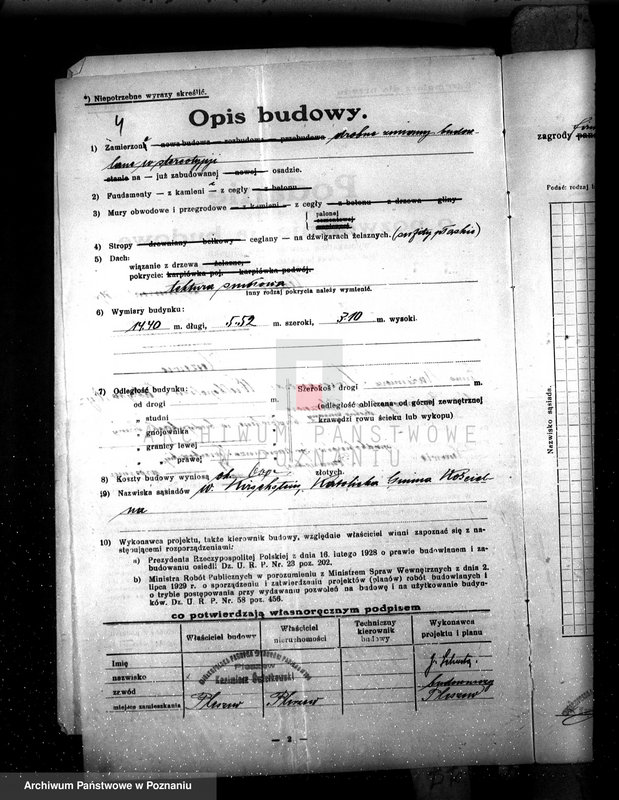 *) Niepotrzebne wyrazy skreślić.
4
Opis budowy.
1) Zamierzone nowa budowa – rozbudowa – przebudowa drobne zmiany budow-
lane w
stanie na — już zabudowanej — nowej — osadzie.
2) Fundamenty — z kamieni — z cegły — z betonu
3) Mury obwodowe i przegrodowe — z kamieni — z cegły — z betonu — z drzewa — gliny
palonej
cementowej
4) Stropy — drewniany — belkowy — ceglany — na dźwigarach żelaznych. (sufity płaskie)
5) Dach:
wiązanie z drzewa — żelazne,
pokrycie: karpiówka poj. — karpiówka podwój.
tektura smołowa
inny rodzaj pokrycia należy wymienić.
6) Wymiary budynku:
14.40 m. długi, 5.52 m. szeroki, 3.10 m. wysoki.
7) Odległość budynku: Szerokość drogi m.
od drogi m.
„ studni „
„ gnojownika „
„ granicy lewej „
„ „ prawej „
(odległość obliczana od górnej zewnętrznej
krawędzi rowu ścieku lub wykopu)
8) Koszty budowy wyniosą ok. złotych.
9) Nazwiska sąsiadów W. Hirschstein, Katolicka Gmina Kościel-
na
10) Wykonawca projektu, także kierownik budowy, względnie właściciel winni zapoznać się z na-
stępującemi rozporządzeniami:
a) Prezydenta Rzeczypospolitej Polskiej z dnia 16. lutego 1928 o prawie budowlanem i za-
budowaniu osiedli: Dz. U. R. P. Nr. 23 poz. 202.
b) Ministra Robót Publicznych w porozumieniu z Ministrem Spraw Wewnętrznych z dnia 2.
lipca 1929 o sporządzeniu i zatwierdzaniu projektów (planów) robót budowlanych i
o trybie postępowania przy wydawaniu pozwoleń na budowę i na użytkowanie budyn-
ków. Dz. U. R. P. Nr 58 poz. 456.
co potwierdzają własnoręcznym podpisem
Właściciel budowy
Właściciel nieruchomości
Techniczny kierownik budowy
Wykonawca projektu i planu
Imię
nazwisko
zawód
miejsce zamieszkania
Pleszew
Kazimierz
J.
budowniczy
Pleszew Pleszew Pleszew
— 2 —
zagrody
Podać: rodzaj
Nazwisko sąsiada.
ARCHIWUM PAŃSTWOWE
W POZNANIU
Archiwum Państwowe w Poznaniu